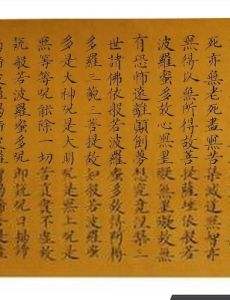 死亦無老死盡無苦集滅道無智亦
無得以無所得故菩提薩埵依般若
波羅蜜多故心無罣礙無罣礙故無
有恐怖遠離顛倒夢想究竟涅槃三
世諸佛依般若波羅蜜多故得阿耨
多羅三藐三菩提故知般若波羅蜜
多是大神呪是大明呪是無上呪是
無等等呪能除一切苦真實不虛故
說般若波羅蜜多呪即說呪曰揭諦